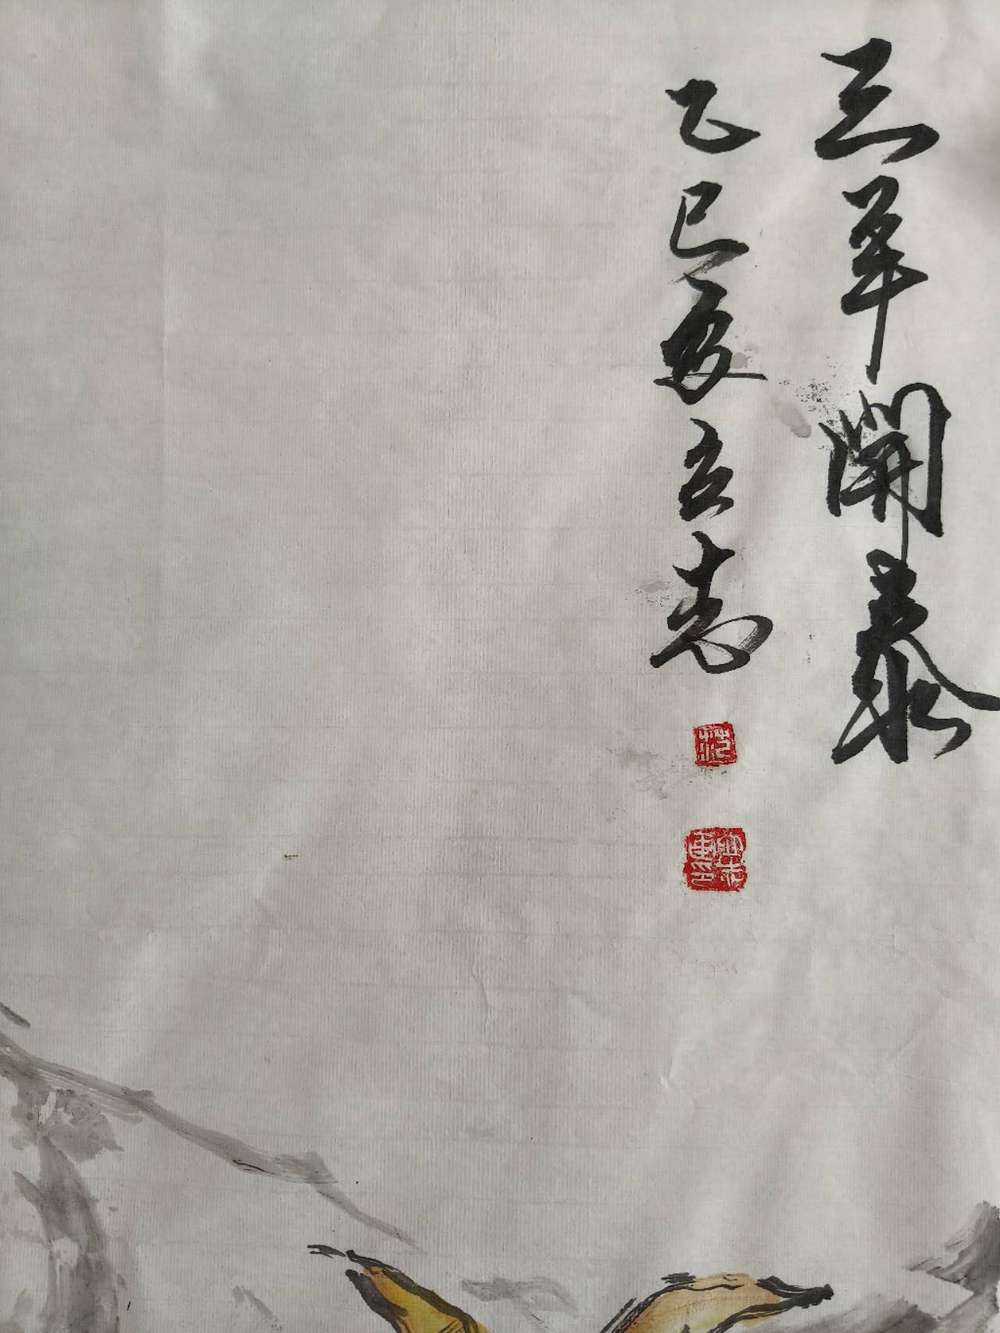 三羊開泰
乙巳夏立志